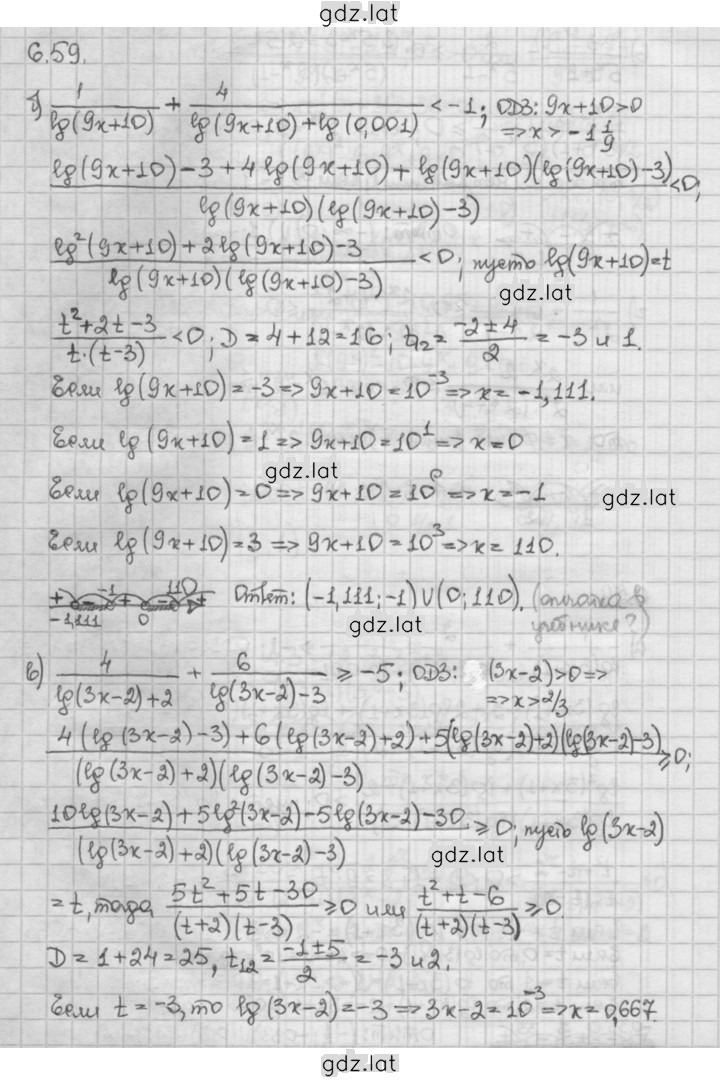 gdz.lat
6.59.
б) 1/lg(9x+10) + 4/(lg(9x+10)+lg(0,001)) < -1; ОДЗ: 9x+10>0
=> x > -1 1/9
(lg(9x+10)-3+4lg(9x+10)+lg(9x+10)(lg(9x+10)-3))/(lg(9x+10)(lg(9x+10)-3)) <0;
(lg²(9x+10)+2lg(9x+10)-3)/(lg(9x+10)(lg(9x+10)-3)) <0; пусть lg(9x+10)=t
gdz.lat
(t²+2t-3)/(t·(t-3)) <0; D=4+12=16; t₁₂= (-2±4)/2 = -3 и 1.
Если lg(9x+10)=-3 => 9x+10=10⁻³ => x=-1,111.
Если lg(9x+10)=1 => 9x+10=10¹ => x=0
gdz.lat
Если lg(9x+10)=0 => 9x+10=10⁰ => x=-1
gdz.lat
Если lg(9x+10)=3 => 9x+10=10³ => x=110.
+ - -1 + - 110 + Ответ: (-1,111; -1)∪(0; 110). (опечатка в
-1,111 0 учебнике?)
gdz.lat
в) 4/(lg(3x-2)+2) + 6/(lg(3x-2)-3) ≥ -5; ОДЗ: (3x-2)>0 =>
=> x>2/3
(4(lg(3x-2)-3)+6(lg(3x-2)+2)+5(lg(3x-2)+2)(lg(3x-2)-3))/((lg(3x-2)+2)(lg(3x-2)-3)) ≥0;
(10lg(3x-2)+5lg²(3x-2)-5lg(3x-2)-30)/((lg(3x-2)+2)(lg(3x-2)-3)) ≥0; пусть lg(3x-2)
gdz.lat
=t, тогда (5t²+5t-30)/((t+2)(t-3)) ≥0 или (t²+t-6)/((t+2)(t-3)) ≥0
D=1+24=25, t₁₂= (-1±5)/2 = -3 и 2.
Если t=-3, то lg(3x-2)=-3 => 3x-2=10⁻³ => x=0,667.
gdz.lat